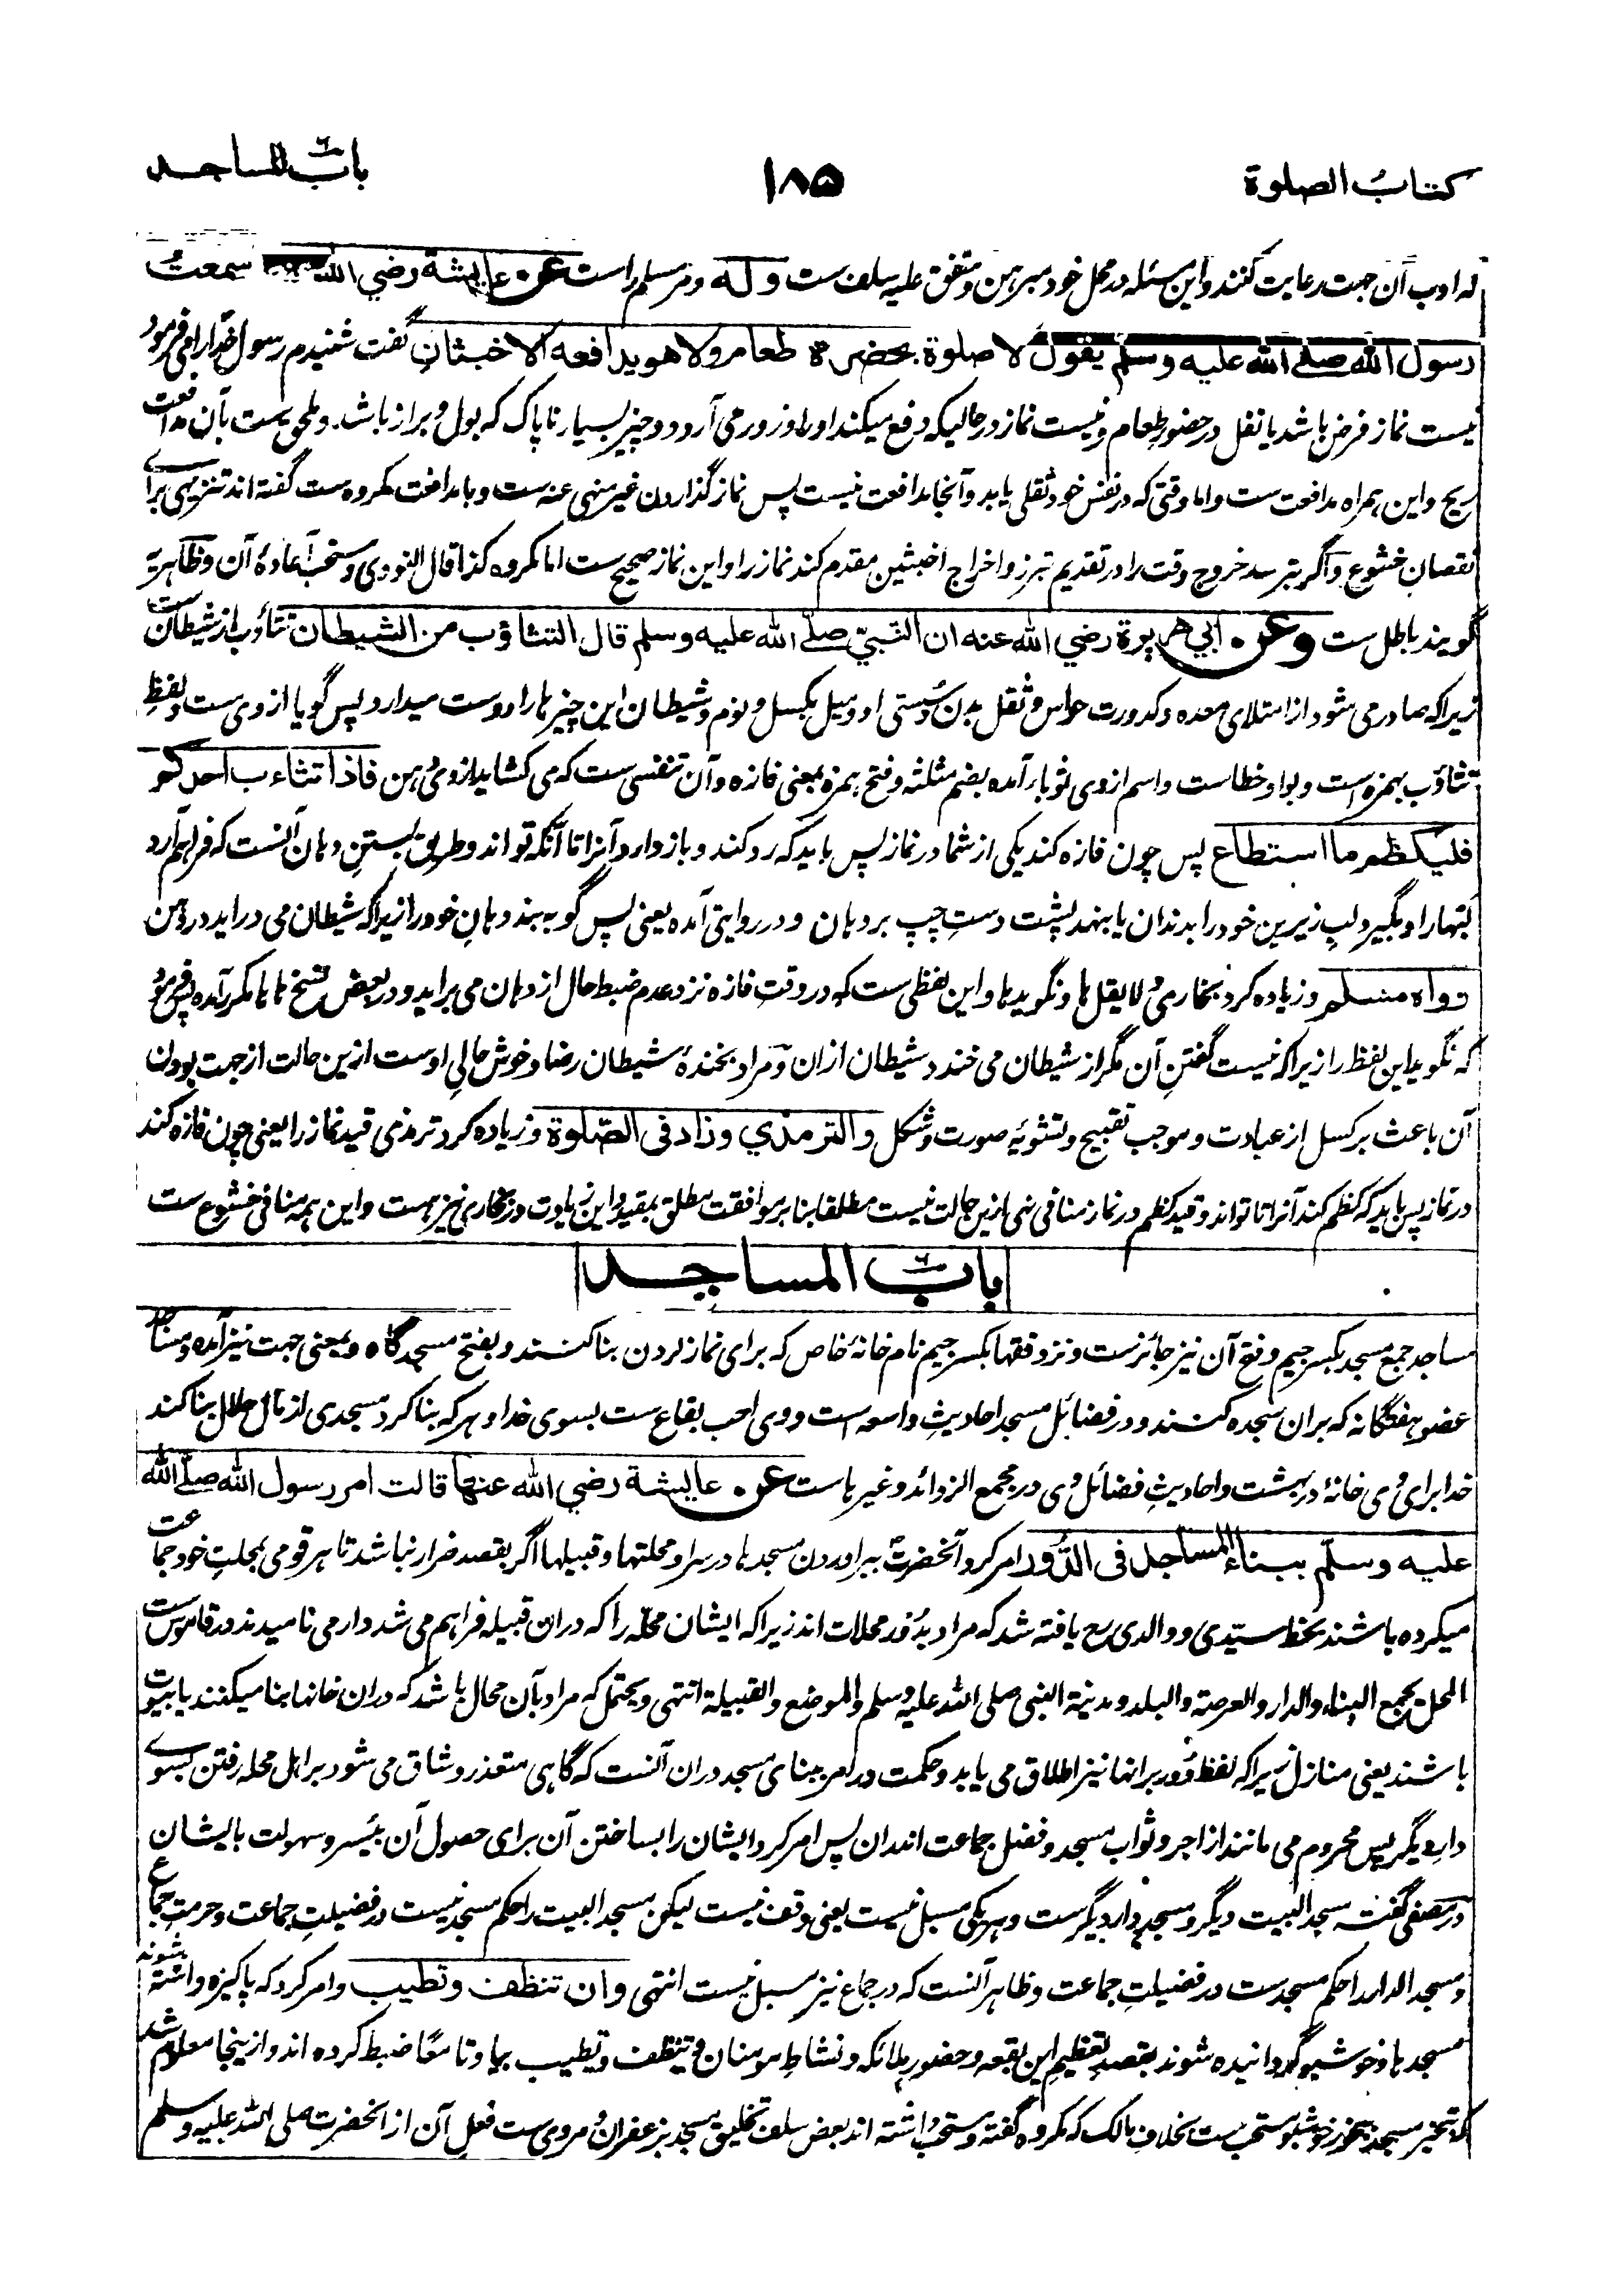 کتاب الصلوة ۱۸۵ باب المساجد
که ادب آن جهت رعایت کنند و این مسئله در محل خود مبرهن و متفق علیه سلف ست وله و مر مسلم راست عن عایشة رضي الله سمعت
رسول الله صلے الله علیه وسلم یقول لا صلوة بحضرة طعام ولا هو یدافعه الاخبثان گفت شنیدم رسول خدا را می فرمود
نیست نماز فرض باشد یا نفل در حضور طعام و نیست نماز در حالیکه دفع میکند او را و زور می آرد دو چیز بسیار ناپاک که بول و براز باشد و ملحق ست بآن مدافعت
ریح و این همراه مدافعت ست و اما وقتی که در نفس خود ثقلی یابد و آنجا مدافعت نیست پس نماز گذاردن غیر منهی عنه ست و با مدافعت مکروه ست گفته اند تنزیهی برای
نقصان خشوع و اگر بترسد خروج وقت را در تقدیم تبرز و اخراج اخبثین مقدم کند نماز را و این نماز صحیح ست اما مکروه کذا قال النووی و مستحب اعادۀ آن و ظاهریه
گویند باطل ست وعن ابي هریرة رضي الله عنه ان النبيّ صلے الله علیه وسلم قال التثاؤب من الشیطان تثاؤب از شیطان ست
زیرا که صادر می شود از امتلای معده و کدورت حواس و ثقل بدن و سستی او و میل بکسل و نوم و شیطان این چیزها را دوست میدارد پس گویا از وی ست و لفظ
تثاؤب بهمزه است و بواو خطاست و اسم از وی ثوباء آمده بضم مثلثه و فتح همزه بمعنی فازه و آن تنفسی ست که می کشاید از وی دهن فاذا تثاءب احدکم
فلیکظم ما استطاع پس چون فازه کند یکی از شما در نماز پس باید که رد کند و باز دارد آنرا تا آنکه تواند و طریق بستن دهان آنست که فراهم آرد
لبها را و بگیرد لب زیرین خود را بدندان یا بنهد پشت دست چپ بر دهان و در روایتی آمده یعنی پس گو به بند دهان خود را زیرا که شیطان می دراید در دهن
رواه مسلم و زیاده کرد بخاری و لا یقل ها و نگوید ها و این لفظی ست که در وقت فازه نزد عدم ضبط حال از دهان می براید و در بعض نسخ ها ها مکرر آمده پس فرمود
که نگوید این لفظ را زیرا که نیست گفتن آن مگر از شیطان می خندد شیطان ازان و مراد بخندۀ شیطان رضا و خوش حالی اوست ازین حالت از جهت بودن
آن باعث بر کسل از عبادت و موجب تقبیح و تشویه صورت و شکل والترمذي وزاد فی الصّلوة و زیاده کرد ترمذی قید نماز را یعنی چون فازه کند
در نماز پس باید که کظم کند آنرا تا تواند و قید کظم در نماز منافی نهی ازین حالت نیست مطلقا بنا بر موافقت مطلق بمقید و این زیادت در بخاری نیز هست و این همه منافی خشوع ست
باب المساجد
مساجد جمع مسجد بکسر جیم و فتح آن نیز جائز ست و نزد فقها بکسر جیم نام خانۀ خاص که برای نماز کردن بنا کنند و بفتح مسجدگاه و بمعنی جبهت نیز آمده و مساجد
عضو هفتگانه که بران سجده کنند و در فضائل مسجد احادیث واسعه است و وی احب بقاع ست بسوی خدا و هر که بنا کرد مسجدی از مال حلال بنا کند
خدا برای وی خانۀ در بهشت و احادیث فضائل وی در مجمع الزوائد و غیره است عن عایشة رضي الله عنها قالت امر رسول الله صلے الله
علیه وسلم ببناء المساجد فی الدور امر کرد آنحضرت به براوردن مسجدها در سرا و محلتها و قبیلها اگر بقصد ضرار نباشد تا هر قومی بمحلت خود جماعت
میکرده باشند بخط سیّدی و والدی رح یافته شد که مراد بدور محلات اند زیرا که ایشان محله را که دران قبیله فراهم می شد دار می نامیدند و در قاموس ست
المحل بجمع البناء والدار والعرصة والبلد و مدینة النبی صلی الله علیه وسلم والموضع والقبیلة انتهی و یحتمل که مراد بآن محال باشد که دران خانها بنا میکنند یا بیوت
باشند یعنی منازل زیرا که لفظ دور بر آنها نیز اطلاق می یابد و حکمت در امر ببنای مسجد دران آنست که گاهی متعذر و شاق می شود بر اهل محله رفتن بسوی
دار دیگر پس محروم می مانند از اجر و ثواب مسجد و فضل جماعت اندران پس امر کرد ایشان را بساختن آن برای حصول آن بیسر و سهولت بایشان
در مصفی گفته مسجد البیت دیگر و مسجد دار دیگر ست و هر یکی مسبل نیست یعنی وقف نیست لیکن مسجد البیت را حکم مسجد نیست در فضیلت جماعت و حرمت جماع
و مسجد الدار را حکم مسجد ست در فضیلت جماعت و ظاهر آنست که در جماع نیز مسبل نیست انتهی وان تنظف وتطیب و امر کرد که پاکیزه داشته شوند
مسجدها و خوشبو گردانیده شوند بقصد تعظیم این بقعه و حضور ملائکه و نشاط مومنان و تنظف و تطیب بیا و تا معًا ضبط کرده اند و ازینجا معلوم شد
که تبخیر مسجد ببخور خوشبو مستحب ست بخلاف مالک که مکروه گفته و مستحب داشته اند بعض سلف تخلیق مسجد بزعفران و مروی ست فعل آن از آنحضرت صلی الله علیه وسلم